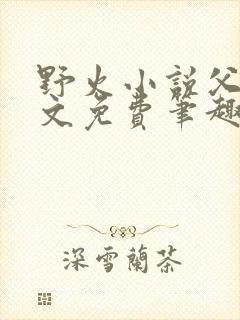 野火小说父
文免费笔趣
深雪蘭茶